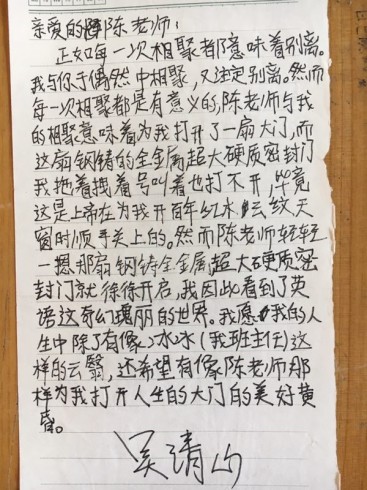 亲爱的陈老师：
正如每一次相聚都意味着别离。
我与你于偶然中相聚，又注定别离。然而
每一次相聚都是有意义的，陈老师与我
的相聚意味着为我打开了一扇大门，而
这扇钢铸的全金属超大硬质密封门
我拖着拽着号叫着也打不开，毕竟
这是上帝在为我开百年红木云纹天
窗时顺手关上的。然而陈老师轻轻
一摁那扇钢铸全金属超大硬质密
封门就徐徐开启，我因此看到了英
语这奇幻瑰丽的世界。我愿我的人
生中除了有像冰冰（我班主任）这
样的云翳，还希望有像陈老师那
样为我打开人生的大门的美好黄
昏。
吴清山